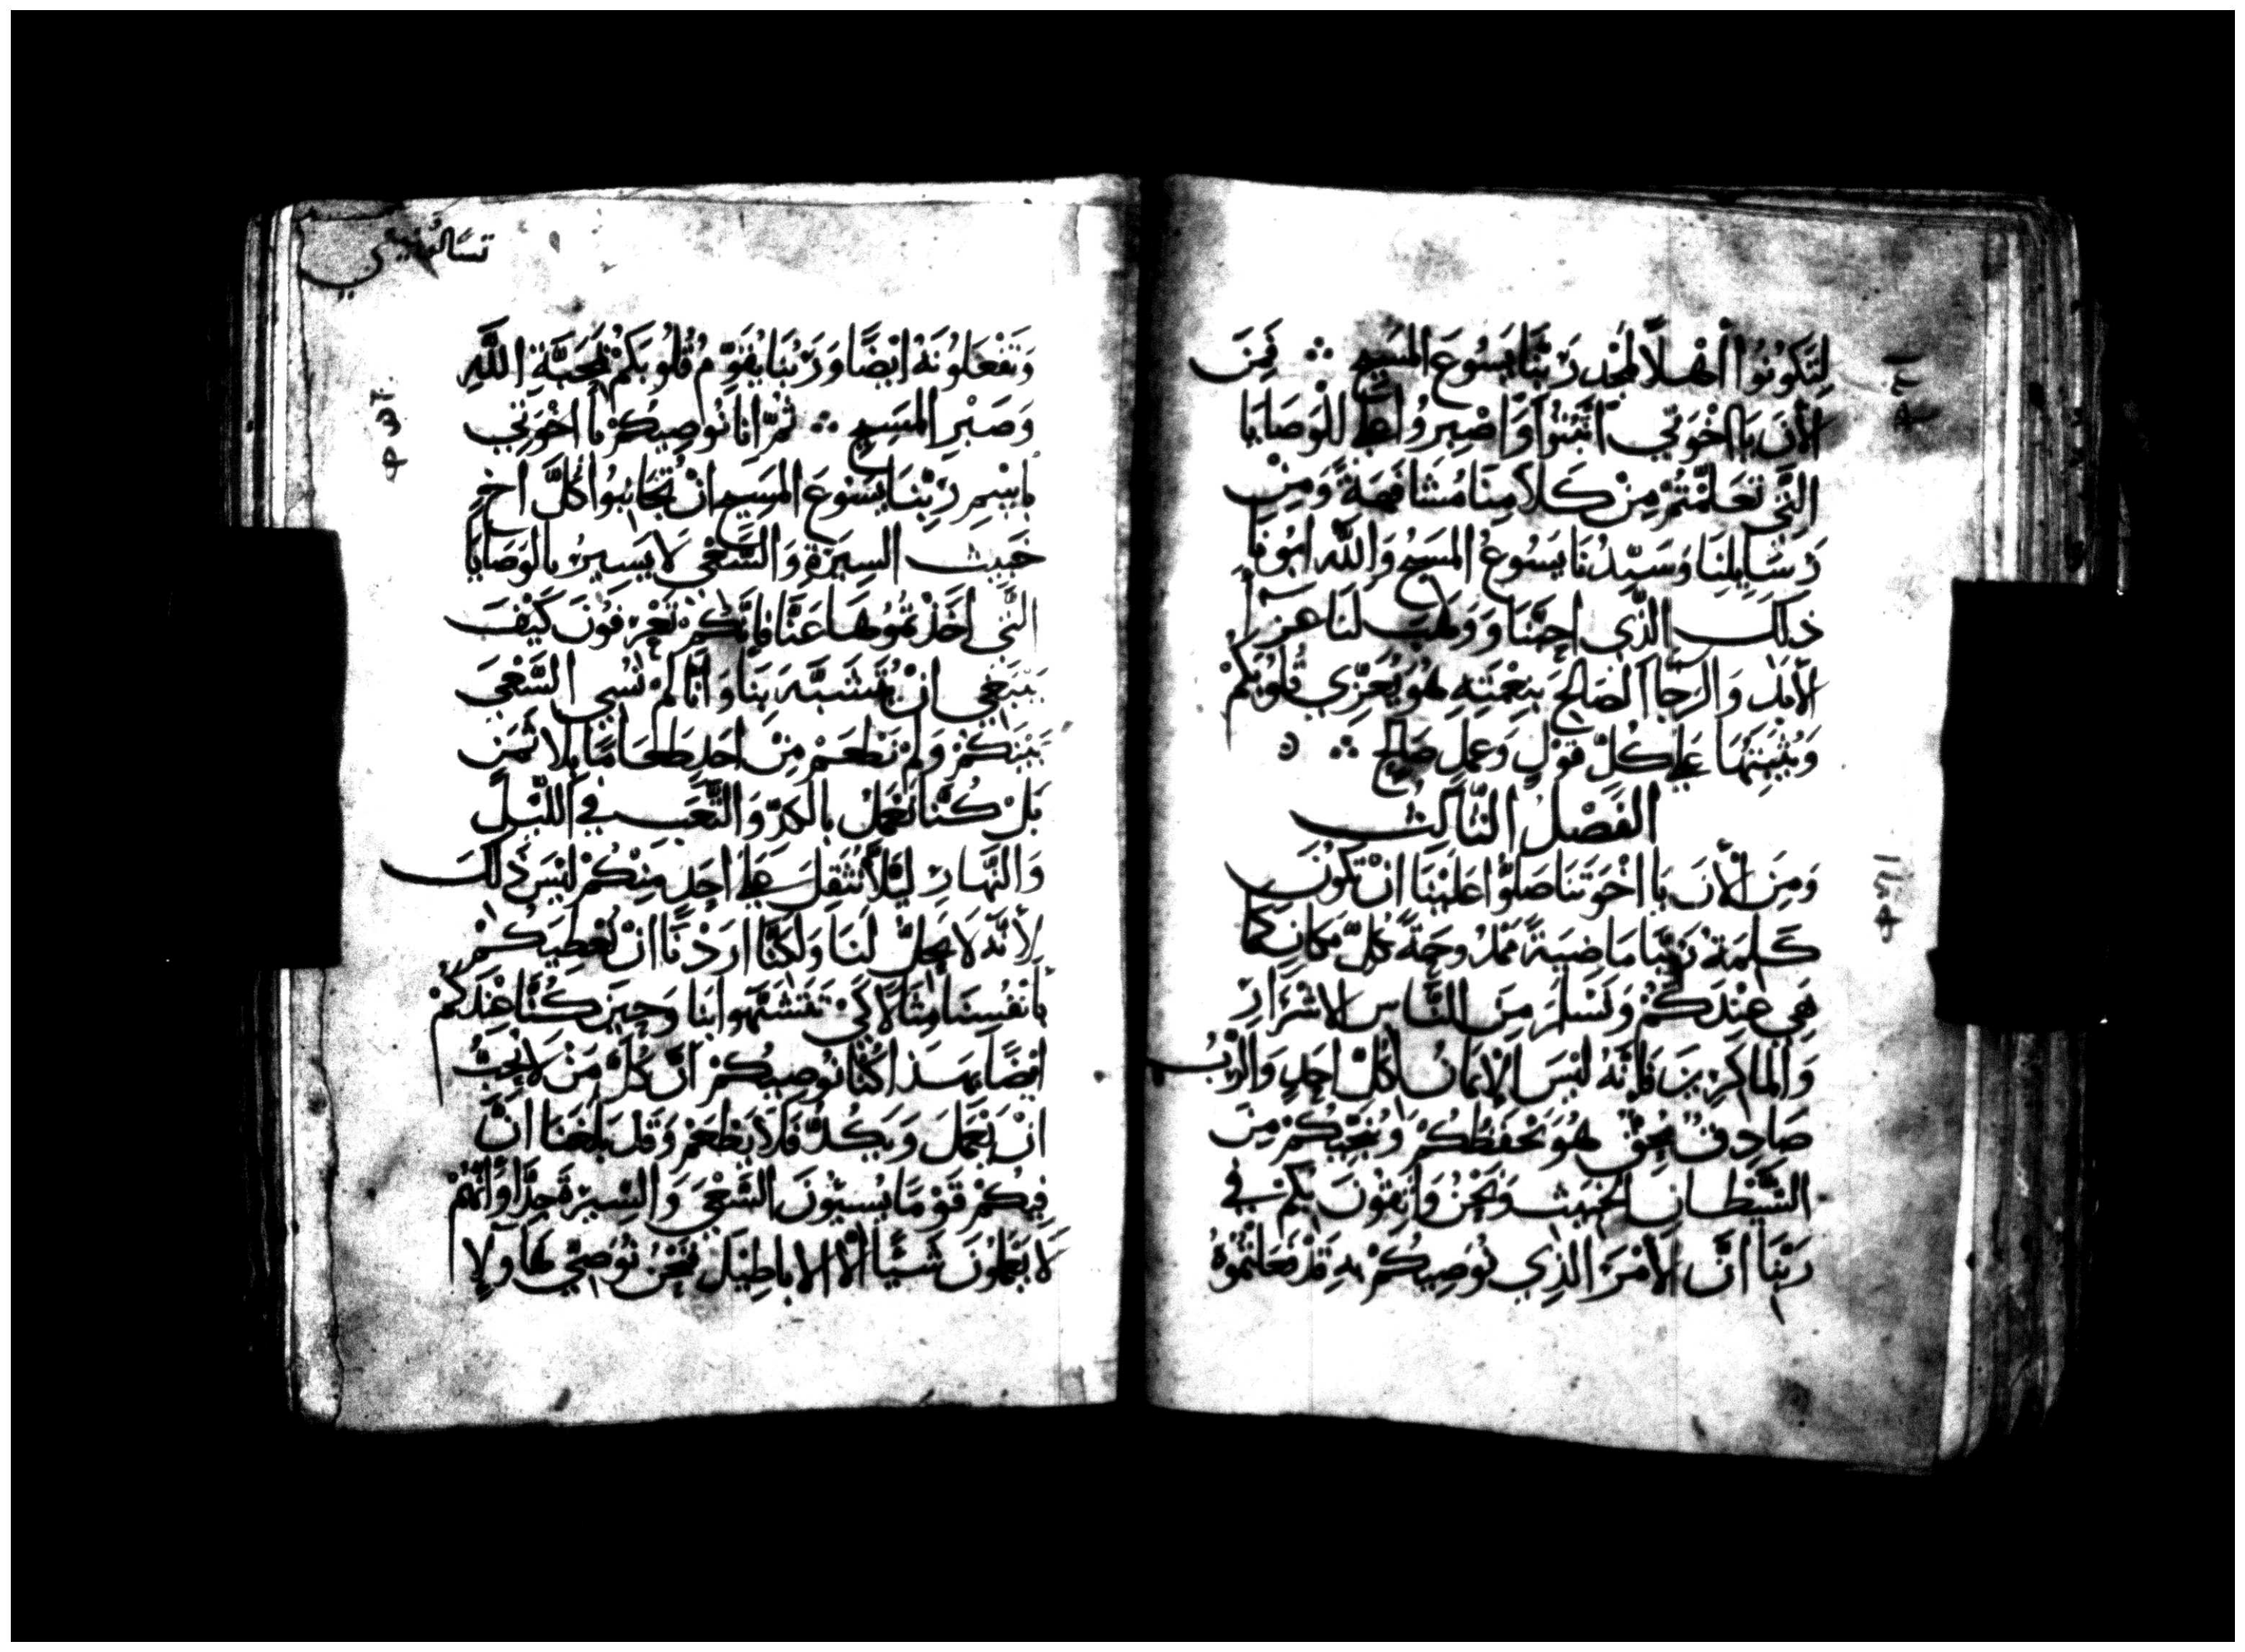 لِتَكُونُوا اهْلاً لمَجْد رَبِّنَا يَسُوعَ المَسِيح ܀ فَمِنَ
الأنَ يَا اخْوَتِي اثْبُتُوا وَاصْبِرُوا عَلى الْوَصَايَا
الَّتِي تَعَلَّمْتُمْ مِنْ كَلاَمِنَا مُشَافَهَةً وَمِن
رَسَايِلِنَا وَسَيِّدُنَا يَسُوعُ المَسِيحُ وَاللَّه ابُونَا
ذَلِكَ الَّذِي احَبَّنَا وَوَهَبَ لَنَا عَزَا
الأبَد وَالرَّجَا الصَالِحَ بِنِعْمَتِهِ هُوَ يُعَزِّي قُلُوبَكُمْ
وَيُثَبِّتهَا عَلى كُلّ قَوْلٍ وَعَمِلٍ صَالِحٍ ܀
الفَصْلُ الثَّالِث
وَمِنَ الأنَ يَا اخْوَتَنَا صَلُّوا عَلَيْنَا انْ تَكُونَ
كَلِمَةُ رَبِّنَا مَاضِيَةً مَمْدُوحَةً بكُلّ مَكانٍ كَمَا
هِيَ عِنْدَكُمْ وَنَسْلَمَ مِنَ النَّاسِ الاشْرَارِ
وَالماكِرِينَ فَانَّهُ لَيْسَ الإيمَانُ لكُلّ احَدٍ وَالرَّبُ
صَادِقٌ مُحِقٌ هُوَ يَحْفَظُكُمْ وَيُنَجِّيكُمْ مِنَ
الشَّيْطَانِ الخَبِيث وَنَحْنُ وَاثِقُونَ بِكُمْ فِي
رَبِّنَا انَّ الأمْرَ الَّذِي نُوصِيكُمْ بِهِ قَدْ فَعَلتُمُوهُ
تسالونيقي
وَتَفْعَلُونَهُ ايْضًا وَرَبُّنَا يُقَوِّمُ قُلُوبَكُمْ لمَحَبَّةِ اللَّهِ
وَصَبْرِ المَسِيح ܀ ثُمَّ انَا نُوصِيكُمْ يَا اخْوَتِي
بَاسْمِ رَبِّنَا يَسُوعَ المَسِيح انْ تُجَانِبُوا كُلَّ اخٍ
خَبِيث السِيرَةِ وَالسَّعْي لاَ يَسِيرُ بِالوَصَايَا
الَّتِي اخَذْتُمُوهَا عَنَّا فَانَّكُمْ تَعْرِفُونَ كَيْفَ
يَنْبَغِي انْ يُتَشَبَّه بِنَا وَانَّا لَمْ نُسِي السَّعْيَ
بَيْنَكُمْ وَلَمْ نَطْعَمْ مِنْ احَدٍ طَعَامًا بِلا ثَمَنٍ
بَلْ كُنَّا نَعْمَلُ بِالكَدِّ وَالتَّعَبِ فِي اللَّيْلِ
وَالنَّهَارِ لَيْلاَّ نُثَقِلَ عَلى احَدٍ مِنْكُمْ لَيْسَ ذَلِكَ
لأنَّه لاَ يَحِلُّ لَنَا وَلَكِنَّا ارَدْنَا انْ نُعْطِيَكُمْ
بِانْفُسِنَا مِثَالاً كَيْ تَتَشَبَّهُوا بِنَا وَحِينَ كُنَّا عِنْدَكُمْ
ايْضًا بِهَذا كُنَّا نُوصِيكُمْ انَّ كُلَّ مَنْ لاَ يُحِبُّ
انْ يَعْمَلَ وَيَكُدَّ فَلاَ يَطْعَمْ وَقَد بَلَغَنَا انَّ
فِيكُمْ قَوْمَا يُسِيُونَ السَّعْيَ وَالسِيْرَةَ جِدًّا وَانَّهُمْ
لاَ يَعْمَلُونَ شَيْئًا الاَّ الابَاطِيلَ نَحْنُ نُوصِي هَاوُلاِ